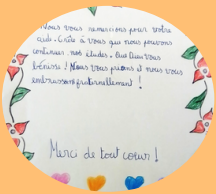 Nous vous remercions pour votre
aide. Grâce à vous que nous pouvons
continuer nos études. Que Dieu vous
bénisse ! Nous vous prions et nous vous
embrassons fraternellement !
Merci de tout coeur !